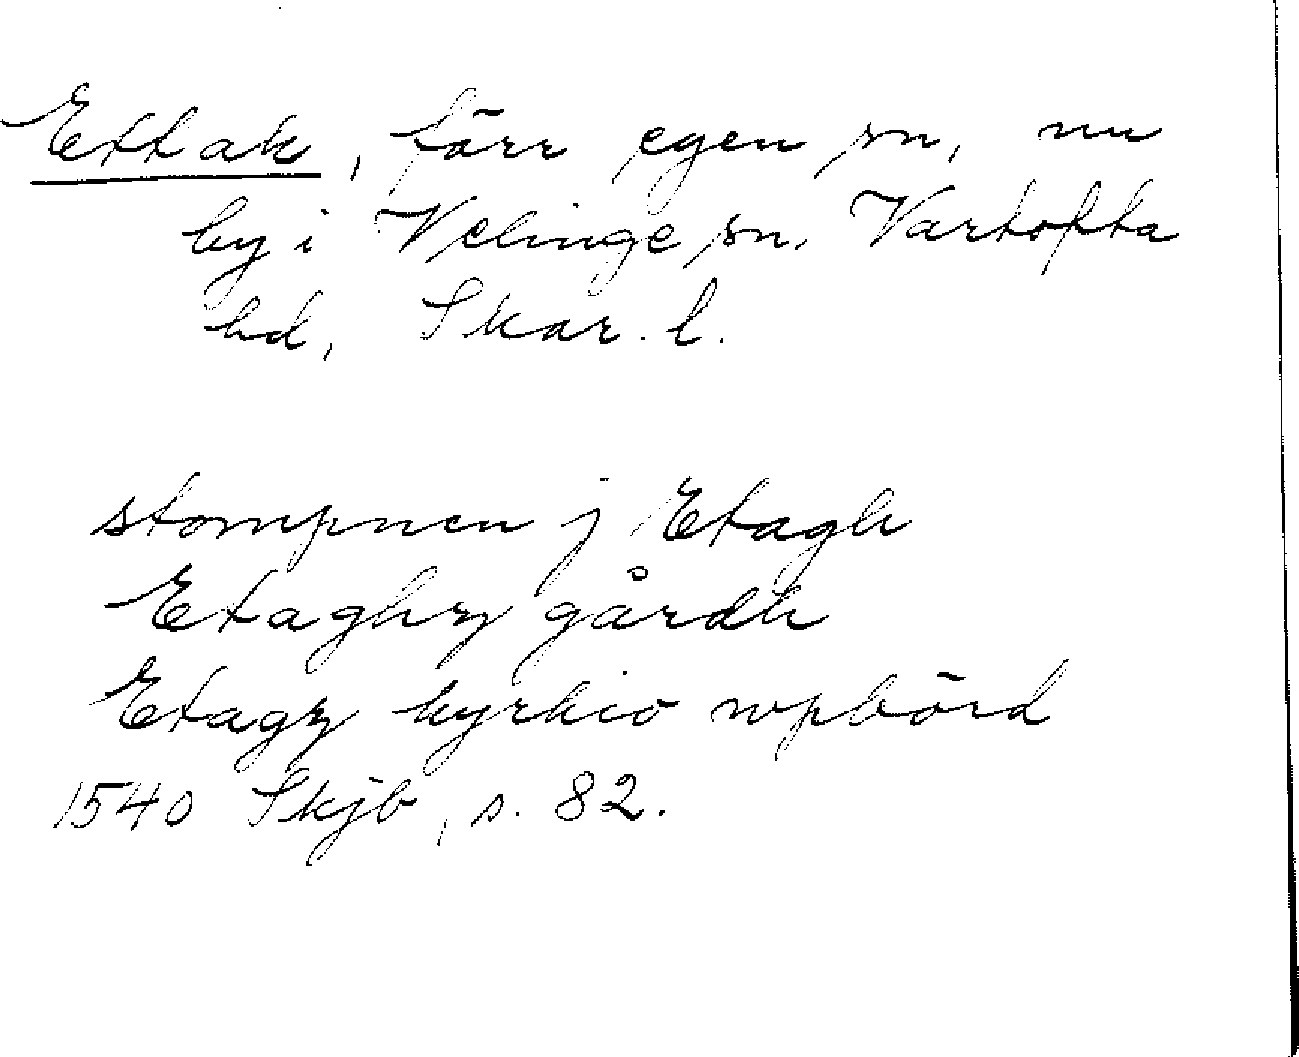 Ettak, förr egen sn, nu
by i Velinge sn. Vartofta
hd, Skar. l.
stompnen j Etagh
Etaghz gårdh
Etagz kyrkio wpbörd
1540 Skjb, s. 82.